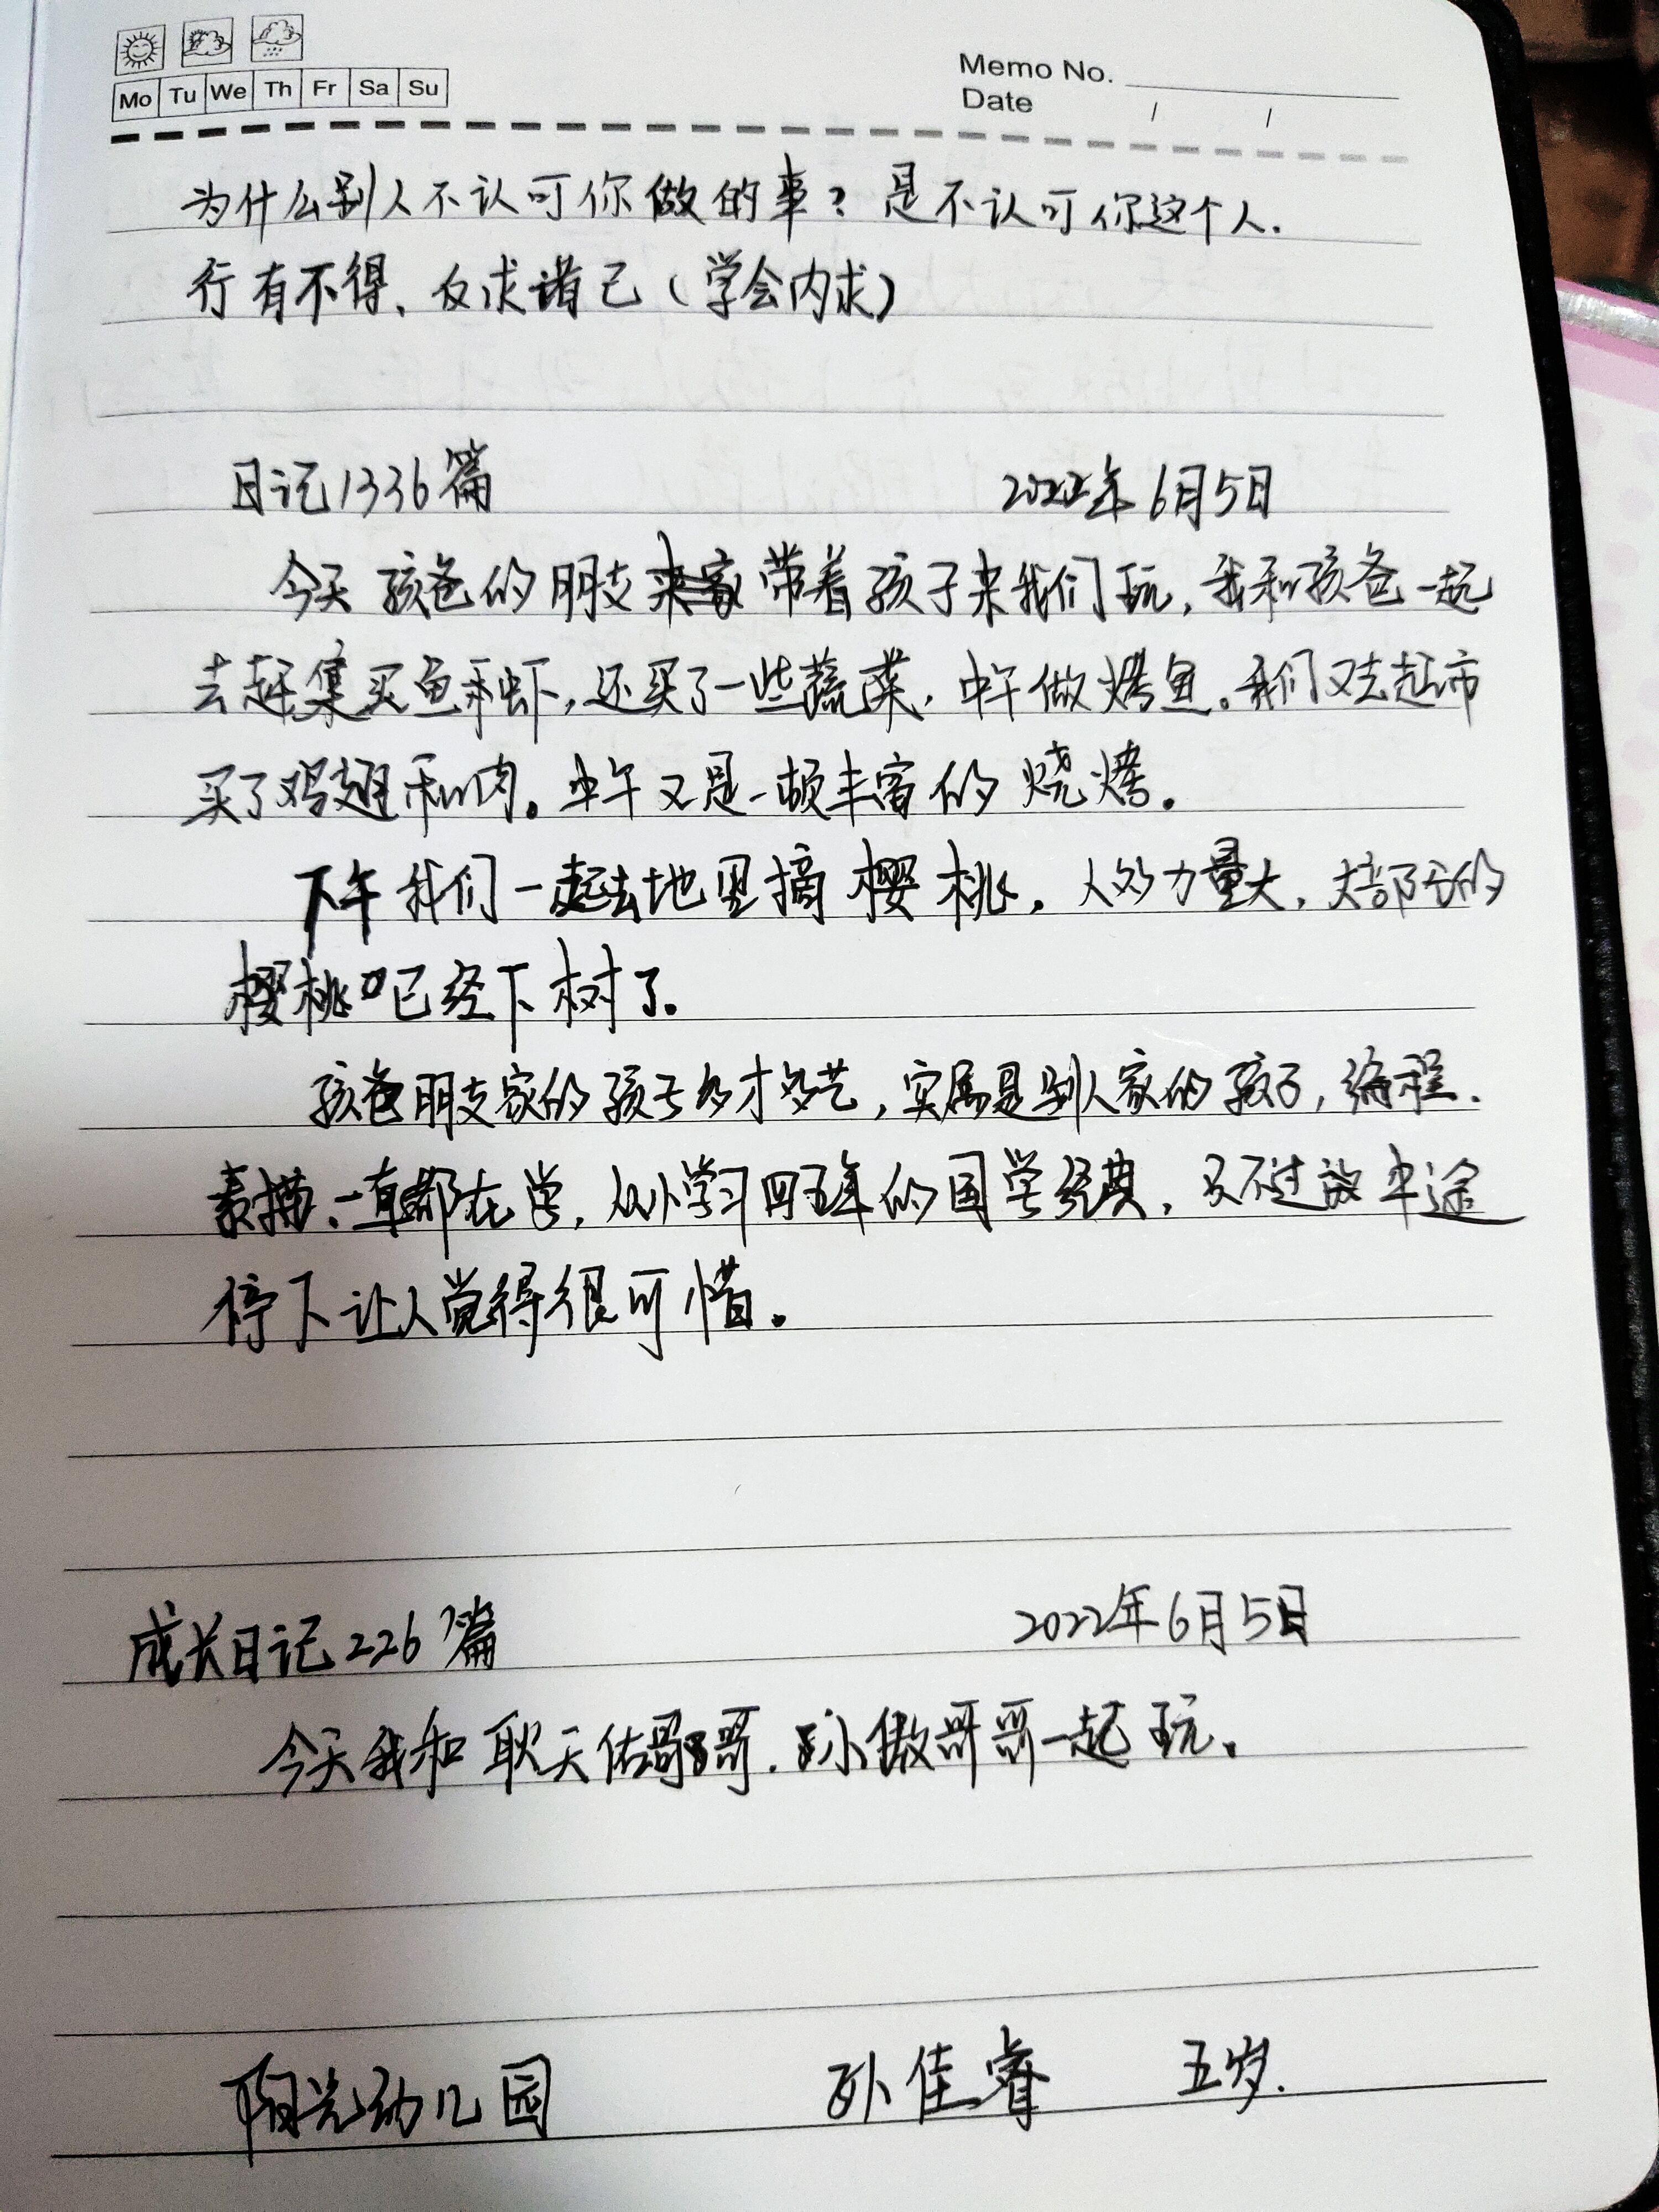 Mo Tu We Th Fr Sa Su
Memo No.
Date / /
为什么别人不认可你做的事？是不认可你这个人.
行有不得、反求诸己（学会内求）
日记1336篇 2022年6月5日
今天孩爸的朋友带着孩子来我们玩，我和孩爸一起
去赶集买鱼和虾，还买了一些蔬菜，中午做烤鱼。我们又去超市
买了鸡翅和肉。中午又是一顿丰富的烧烤。
下午我们一起去地里摘樱桃，人多力量大，大部分的
樱桃已经下树了。
孩爸朋友家的孩子多才多艺，实属是别人家的孩子，编程、
素描、一直都在学，从小学习四五年的国学经典，只不过被中途
停下让人觉得很可惜。
成长日记226篇 2022年6月5日
今天我和耿天佑哥哥、孙傲哥哥一起玩。
阳光幼儿园 孙佳睿 五岁.